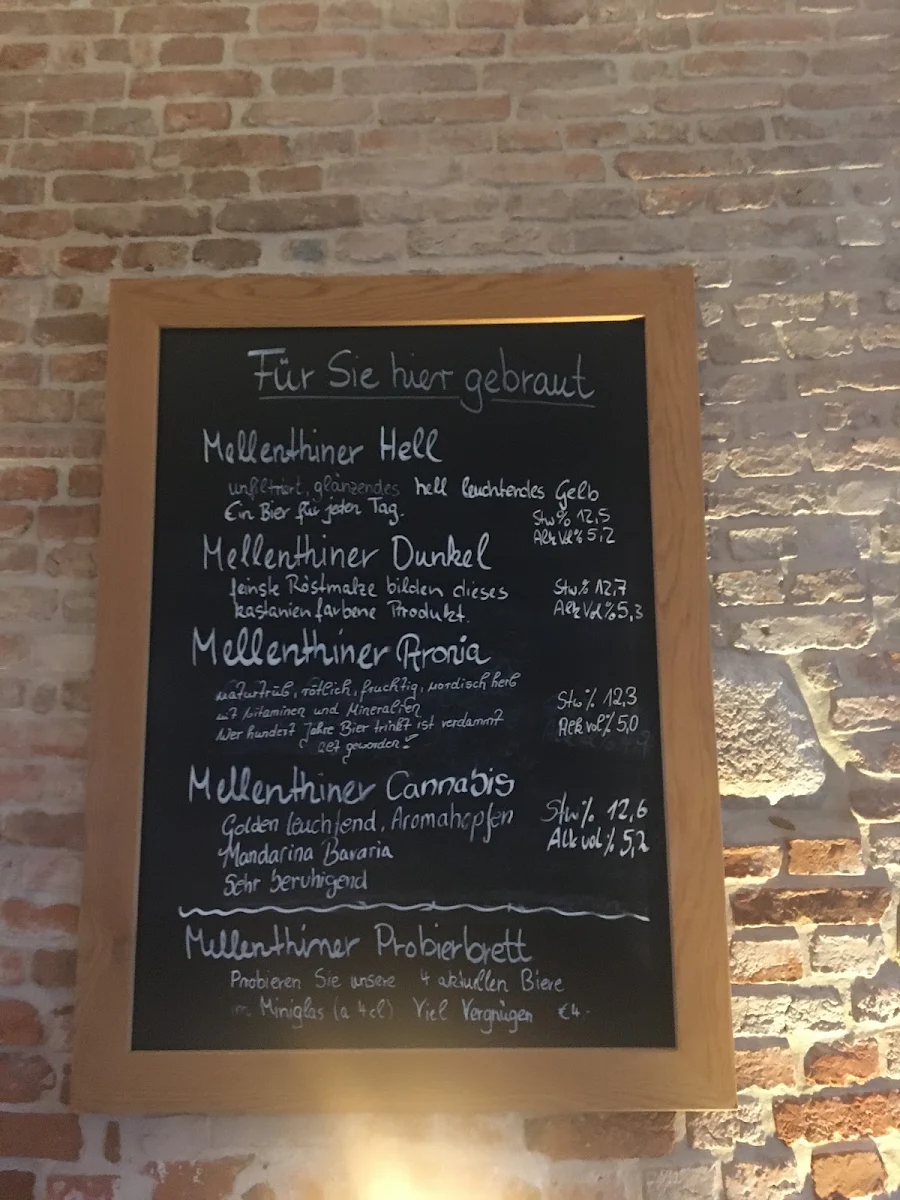 Für Sie hier gebraut
Mellenthiner Hell
unfiltriert, glänzendes hell leuchtendes Gelb
Ein Bier für jeden Tag.
Stw% 12,5
Alk Vol% 5,2
Mellenthiner Dunkel
feinste Röstmalze bilden dieses
kastanienfarbene Produkt.
Stw.% 12,7
Alk Vol% 5,3
Mellenthiner Aronia
naturtrüb, rötlich, fruchtig, nordisch herb
mit Vitaminen und Mineralien
Wer hundert Jahre Bier trinkt ist verdammt
alt geworden!
Stw% 12,3
Alk vol% 5,0
Mellenthiner Cannabis
Golden leuchtend, Aromahopfen
Mandarina Bavaria
Sehr beruhigend
Stw% 12,6
Alk vol% 5,2
Mellenthiner Probierbrett
Probieren Sie unsere 4 aktuellen Biere
im Miniglas (a 4cl) Viel Vergnügen €4.-